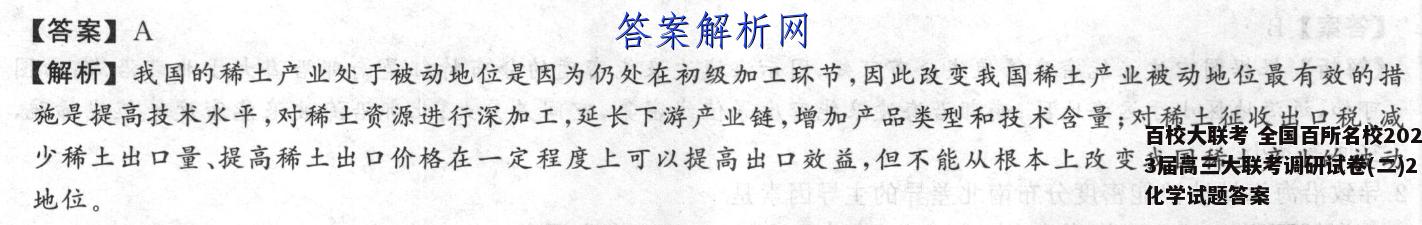 【答案】A
答案解析网
【解析】我国的稀土产业处于被动地位是因为仍处在初级加工环节,因此改变我国稀土产业被动地位最有效的措
施是提高技术水平,对稀土资源进行深加工,延长下游产业链,增加产品类型和技术含量;对稀土征收出口税、减
少稀土出口量、提高稀土出口价格在一定程度上可以提高出口效益,但不能从根本上改变
地位。
百校大联考 全国百所名校202
3届高三大联考调研试卷(二)2
化学试题答案